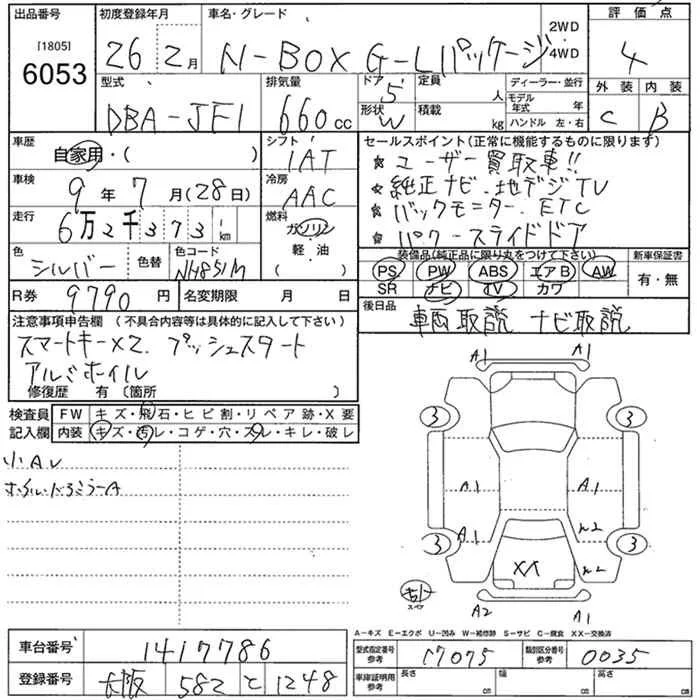 出品番号 初度登録年月 車名・グレード 評価点
[1805] 6053 26 2月 N-BOX G-Lパッケージ 2WD 4WD 4
型式 排気量 ドア 定員 ディーラー・並行 外装 内装
DBA-JF1 660cc 5 人 モデル年式 年 C B
形状 W 積載 kg ハンドル 左・右
車歴 シフト セールスポイント(正常に機能するものに限ります)
自家用・( ) IAT ★ユーザー買取車!!
車検 9年7月(28日) 冷房 AAC ★純正ナビ.地デジTV
走行 6万2千373km 燃料 ガソリン ★バックモニター.ETC
軽・油 ( ) ★パワースライドドア
色 シルバー 色替 色コード NH851M 装備品(純正品に限り丸をつけて下さい) 新車保証書
PS PW ABS エアB AW 有・無
R券 9790円 名変期限 月 日 SR ナビ TV カワ
注意事項申告欄 (不具合内容等は具体的に記入して下さい) 後日品 車両取説 ナビ取説
スマートキー×2. プッシュスタート
アルミホイル
修復歴 有〔箇所 〕
検査員 FW キズ・飛石・ヒビ割・リペア跡・X要
記入欄 内装 キズ・汚レ・コゲ・穴・スレ・キレ・破レ
小Aレ
A1 A1
3 3
A1 A1
A1 ル2
3 3
XX ル2
スペア
A2 A1
A-キズ E-エクボ U-凹み W-補修跡 S-サビ C-腐食 XX-交換済
車台番号 1417786 型式指定番号 参考 17075 類別区分番号 参考 0035
登録番号 大阪 582 と 1248 車庫証明用 参考 長さ cm 幅 cm 高さ cm